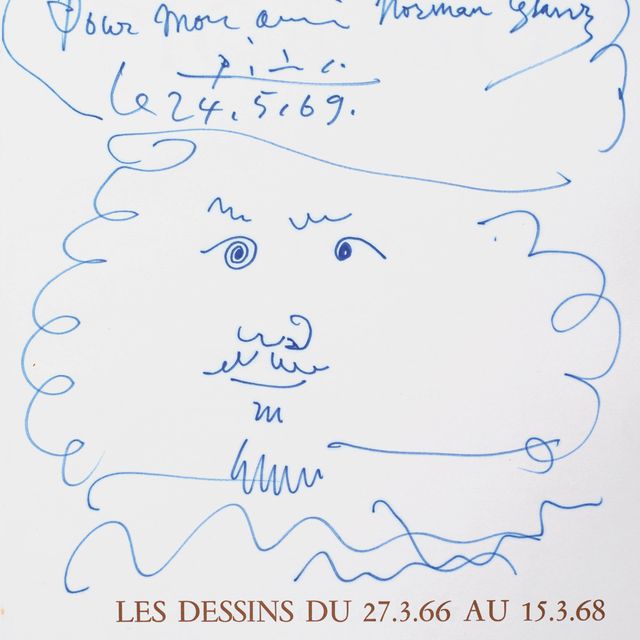 Pour Mon ami Norman Granz
le 24.5.69.
LES DESSINS DU 27.3.66 AU 15.3.68